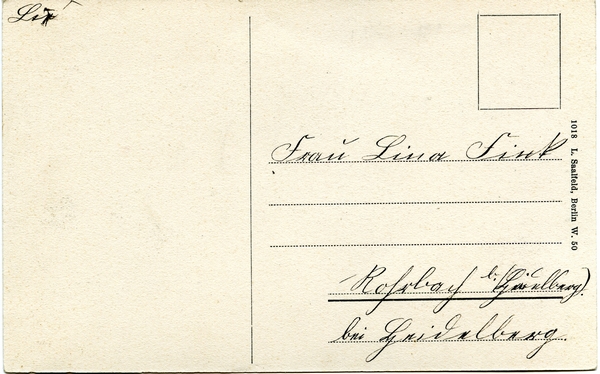 Frau Lina Fink
Rohrbach
bei Heidelberg.
1018 L. Saalfeld, Berlin W. 50